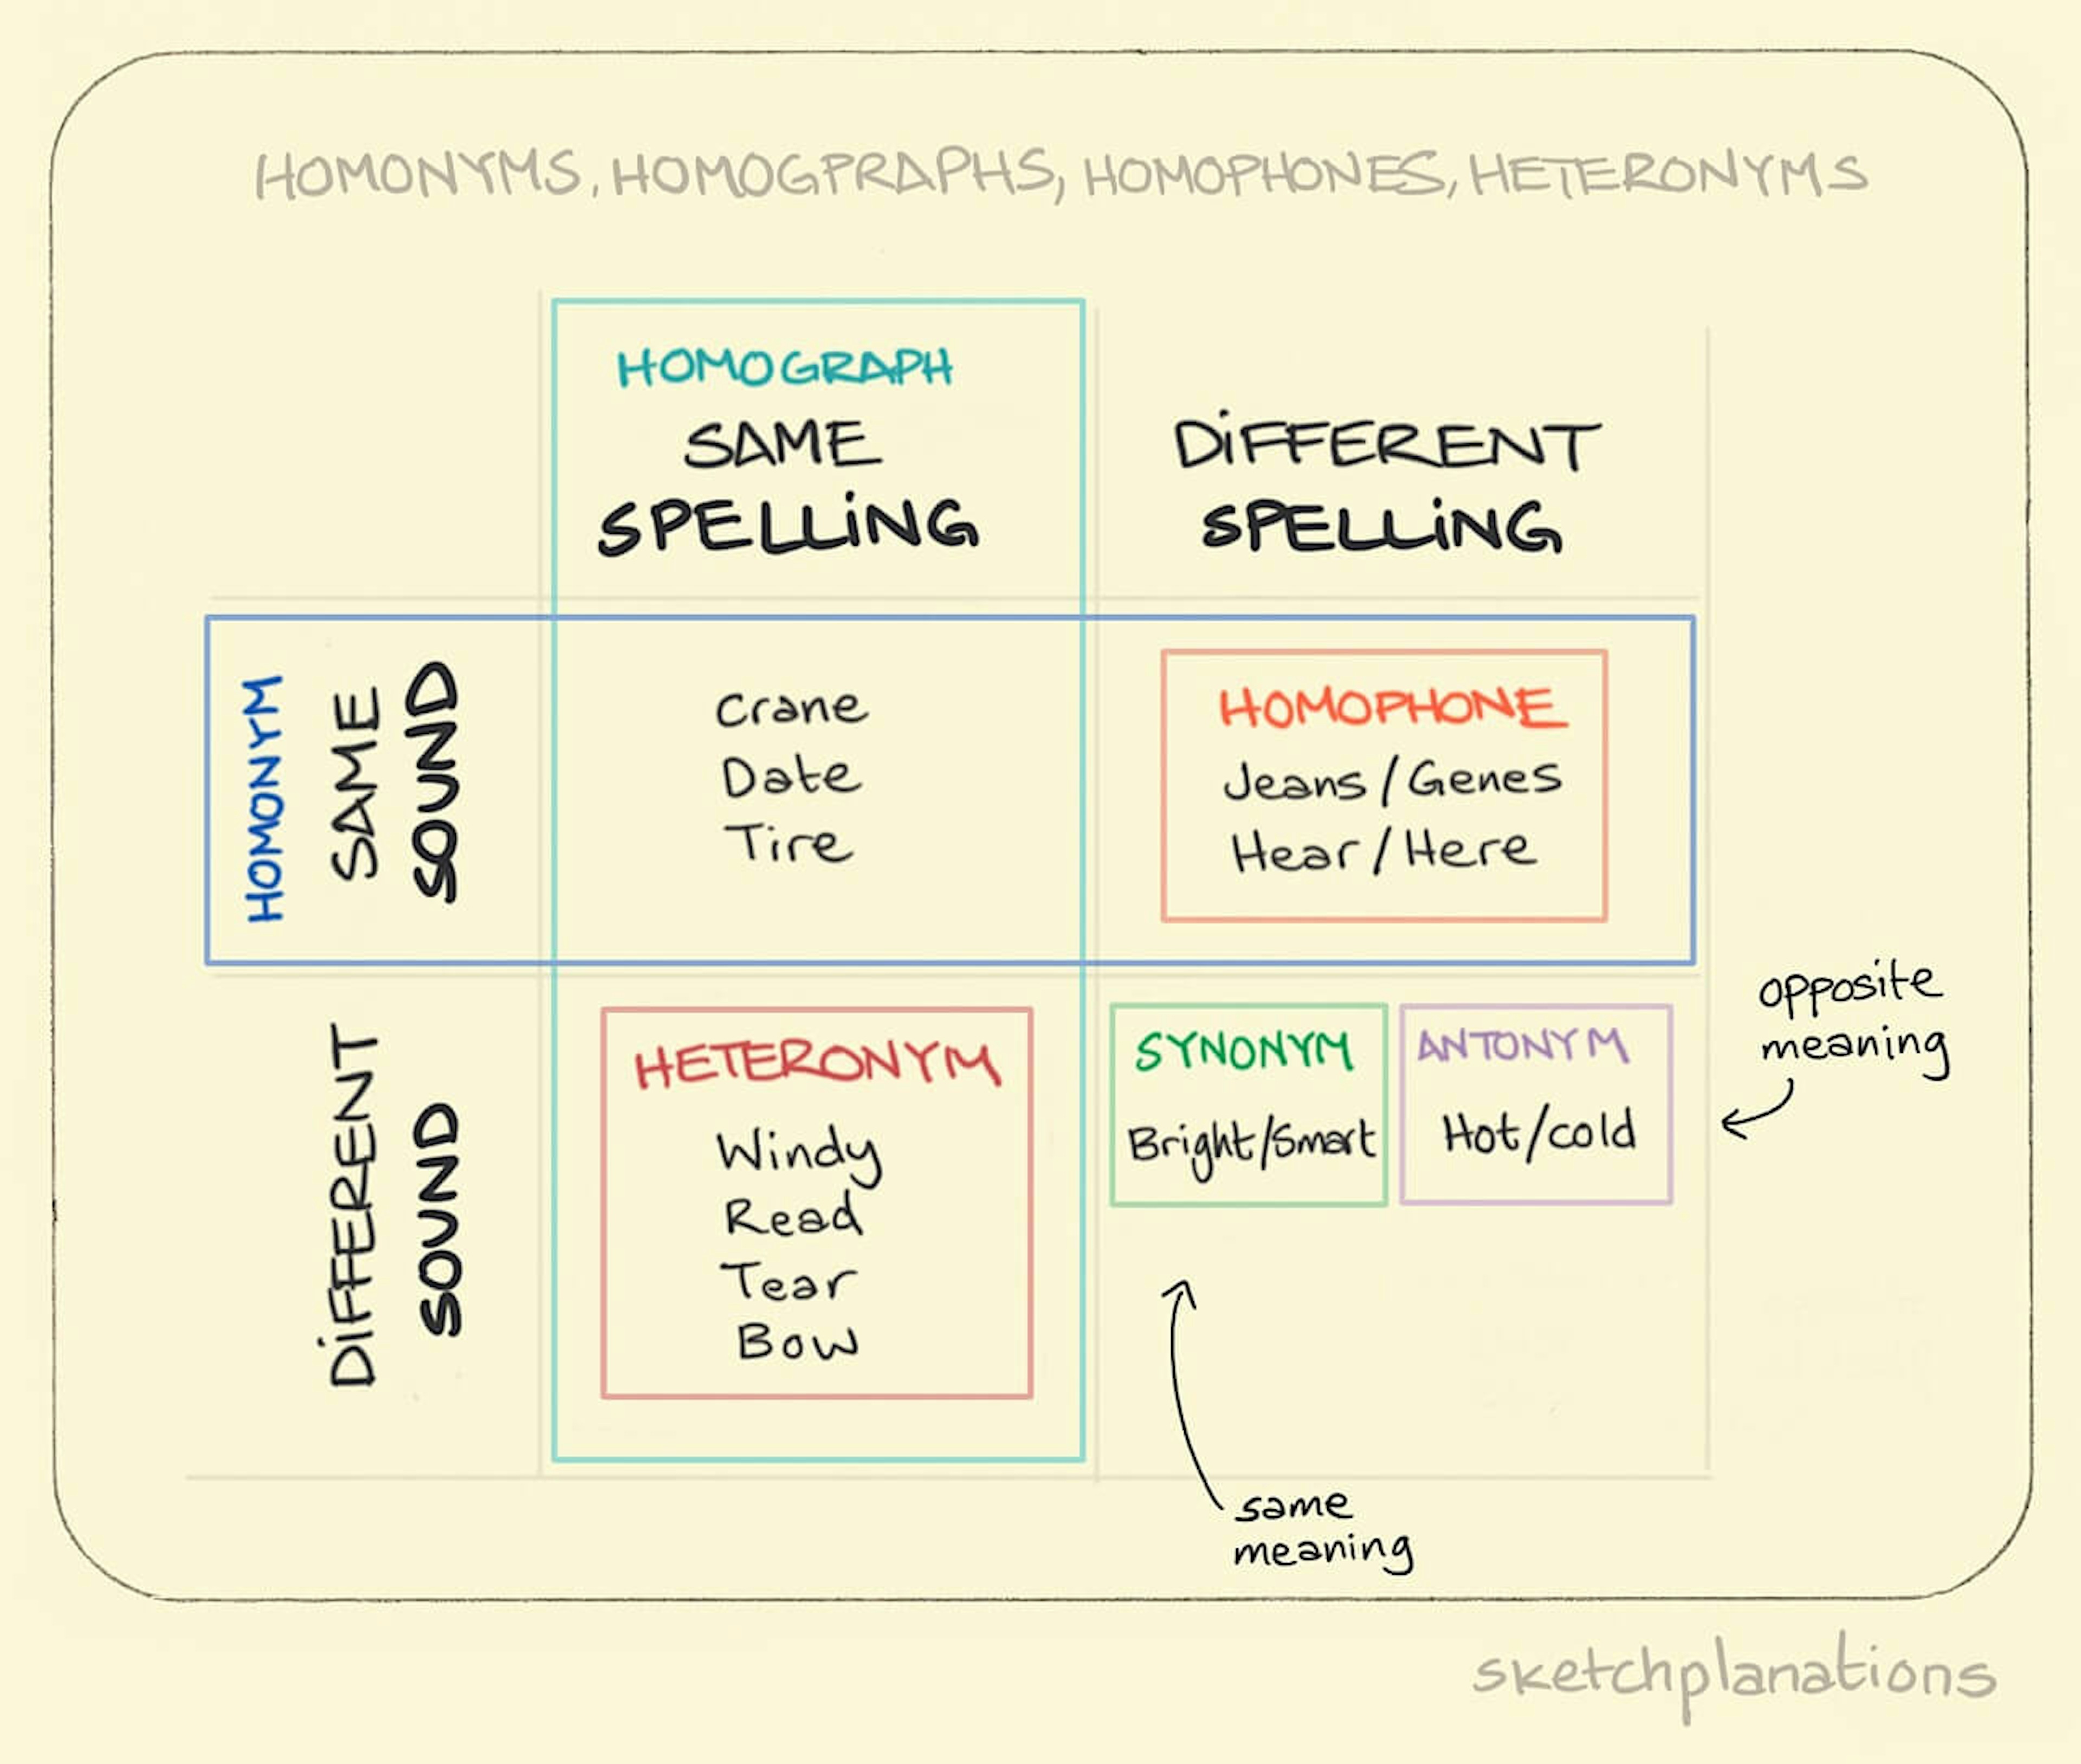 HOMONYMS, HOMOGRAPHS, HOMOPHONES, HETERONYMS
HOMOGRAPH
SAME
SPELLING
DIFFERENT
SPELLING
HOMONYM
SAME
SOUND
Crane
Date
Tire
HOMOPHONE
Jeans/Genes
Hear/Here
DIFFERENT
SOUND
HETERONYM
Windy
Read
Tear
Bow
SYNONYM
Bright/Smart
ANTONYM
Hot/cold
opposite
meaning
same
meaning
sketchplanations